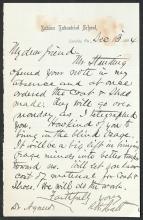 Indian Industrial School,
Dec 13 1884
My dear friend
Mr Standing
opened your note in my
absence and at once
ordered the coat & shoes
made, they will go over
monday, as I telegraphed
you. How kind of you to
bring in the blind
It will be a big lift in bringing
minds into better tone
toward us. Will let you know
cost of material for Coat &
Shoes. We will do the work.
Faithfully yours
Dr Agnew